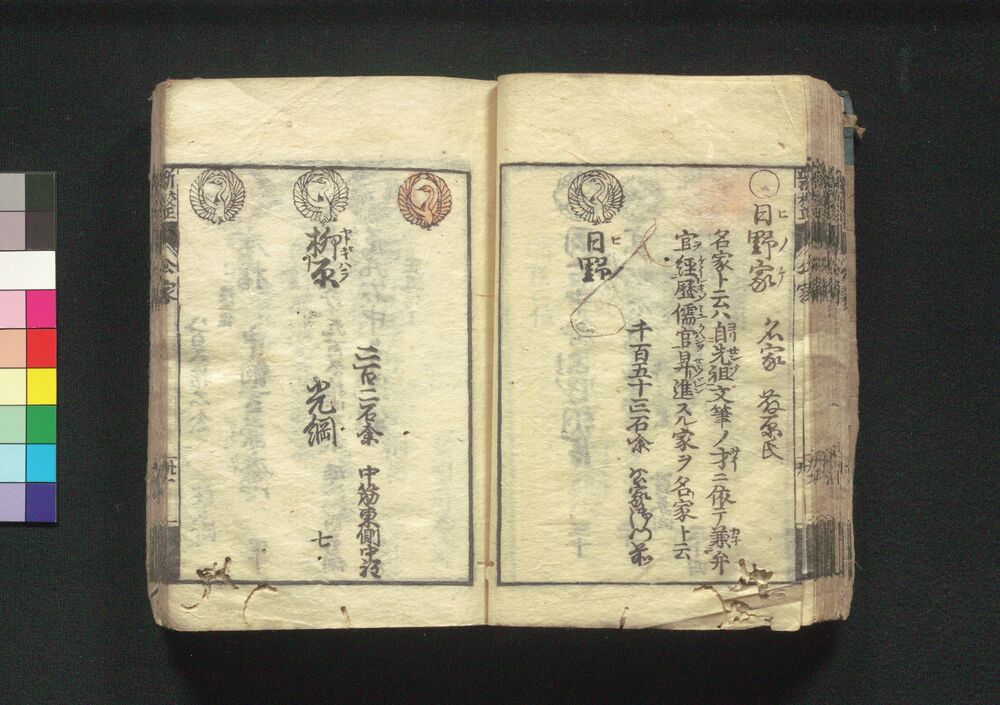 日野家 名家 藤原氏
ヒノケ
名家ト云ハ自先祖文筆ノ才ニ依テ兼弁
官経歴儒官昇進スル家ヲ名家ト云
千百五十三石余
日野
ヒノ
二百二石余 中筋東側中程
柳原
ヤナギハラ
光綱
七